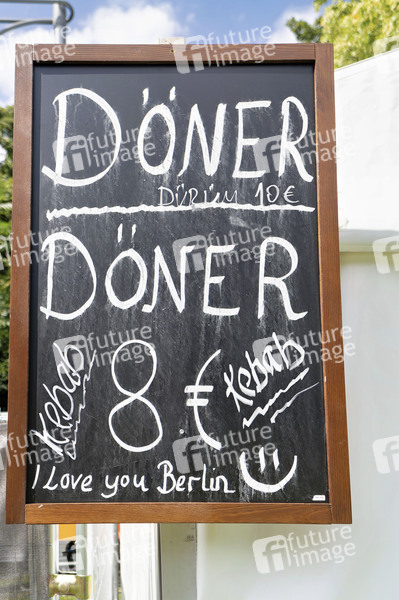 DÖNER
DÜRÜM 10€
DÖNER
Kebab 8.€ Kebab
I Love you Berlin
future image